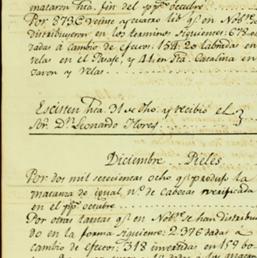 mataron hta. fin del ppdo. octubre
Por 8736 veinte y cuatro lid. qe. en Nobre. se
distribuyeron en los terminos siguientes: 678
dadas á cambio de efectos: 154.20 labradas en
velas en el Parage, y 41 en Sta. Catalina en
Javon y Velas
Existen hta. 31 de dho. qe. recibio el
Sor. Dn. Leonardo Flores
Diciembre Pieles
Por dos mil setecientas ocho qe. produjo la
matansa de igual no. de cabezas verificada
en el ppdo. octubre
Por otras tantas qe. en Nobre. se han distribui
do en la forma siguiente: 2.376 dadas á
cambio de efectos: 318 invertidas en 159 bo